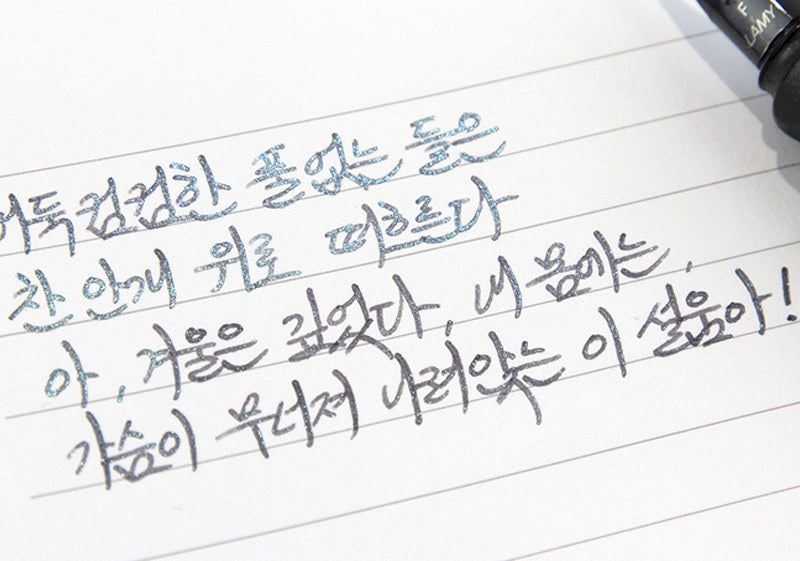 F
LAMY
어둑컴컴한 풀 없는 들은
찬 안개 위로 떠흐른다
아, 겨울은 깊었다, 내 몸에는,
가슴이 무너져 나려앉는 이 설움아!